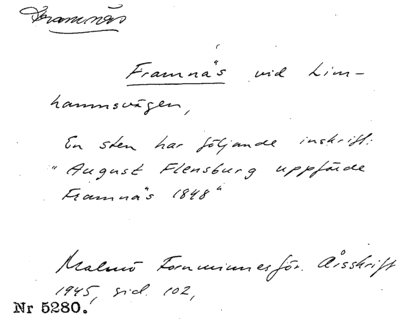 Framnäs
Framnäs vid Lim-
hamnsvägen,
En sten har följande inskrift:
"August Flensburg uppförde
Framnäs 1848"
Malmö Fornminnesför. Årsskrift
1945, sid. 102,
Nr 5280.